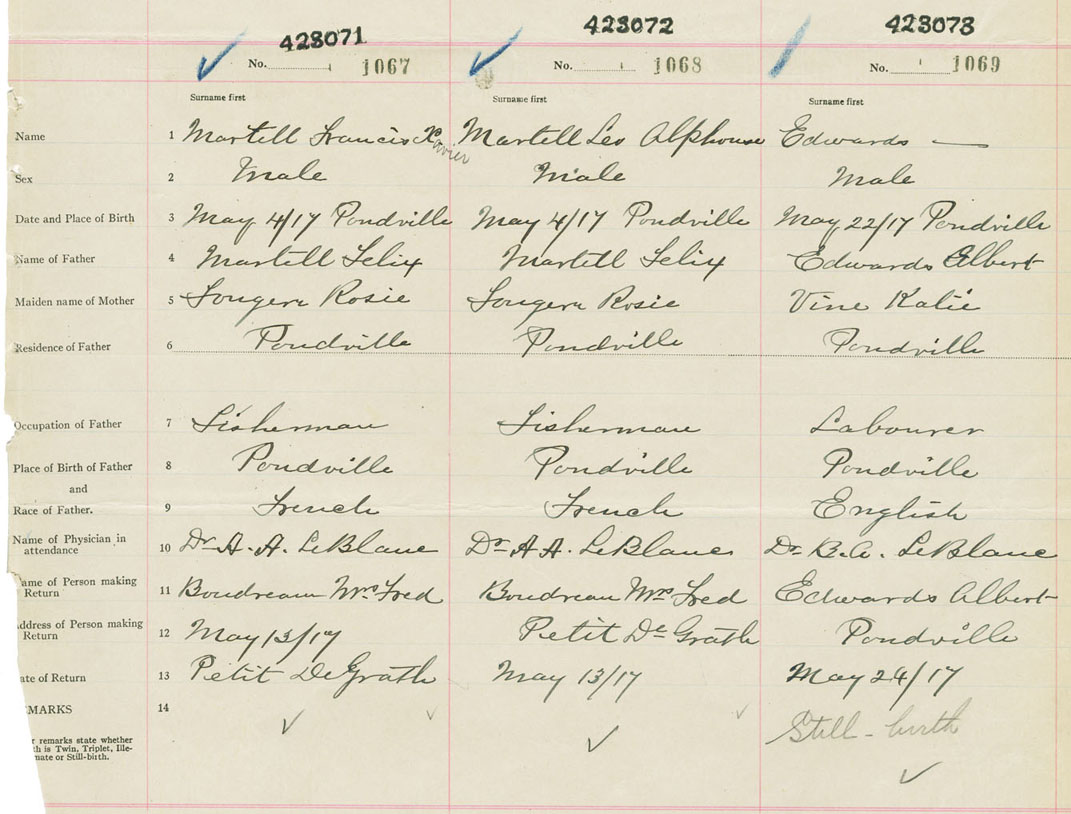 423071 423072 423073
No. 1067 No. 1068 No. 1069
Surname first Surname first Surname first
Name 1 Martell Francis Xavier Martell Leo Alphonse Edwards —
Sex 2 Male Male Male
Date and Place of Birth 3 May 4/17 Pondville May 4/17 Pondville May 22/17 Pondville
Name of Father 4 Martell Felix Martell Felix Edwards Albert
Maiden name of Mother 5 Fougere Rosie Fougere Rosie Vine Katie
Residence of Father 6 Pondville Pondville Pondville
Occupation of Father 7 Fisherman Fisherman Labourer
Place of Birth of Father 8 Pondville Pondville Pondville
and
Race of Father. 9 French French English
Name of Physician in
attendance 10 Dr A. A. LeBlanc Dr A A. LeBlanc Dr B. A. LeBlanc
ame of Person making
Return 11 Boudreau Mrs Fred Boudreau Mrs Fred Edwards Albert
ddress of Person making
Return 12 May 13/17 Petit De Grath Pondville
ate of Return 13 Petit De Grath May 13/17 May 24/17
MARKS 14 Still-birth
r remarks state whether
th is Twin, Triplet, Ille-
mate or Still-birth.